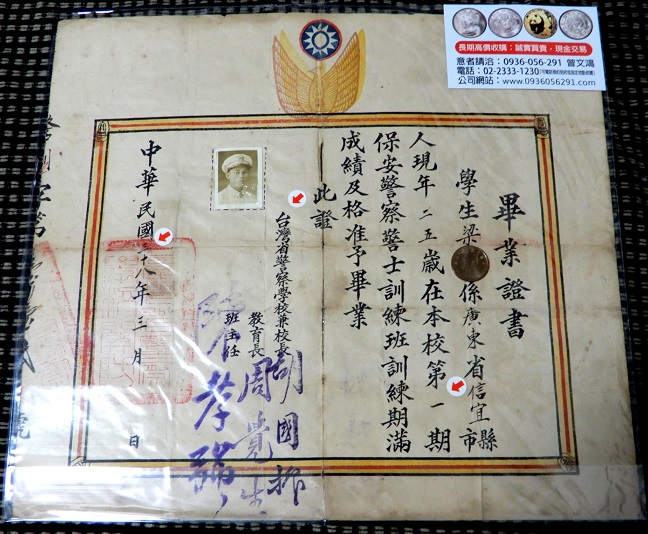 長期高價收購：誠實買賣，現金交易
意者請洽：0936-056-291 曾文鴻
電話：02-2333-1230
公司網站：www.0936056291.com
畢業證書
學生梁 係廣東省信宜縣市
人現年二五歲在本校第一期
保安警察警士訓練班訓練期滿
成績及格准予畢業
此證
台灣省警察學校兼校長胡國振
教育長周覺生
班主任
中華民國三十八年三月 日